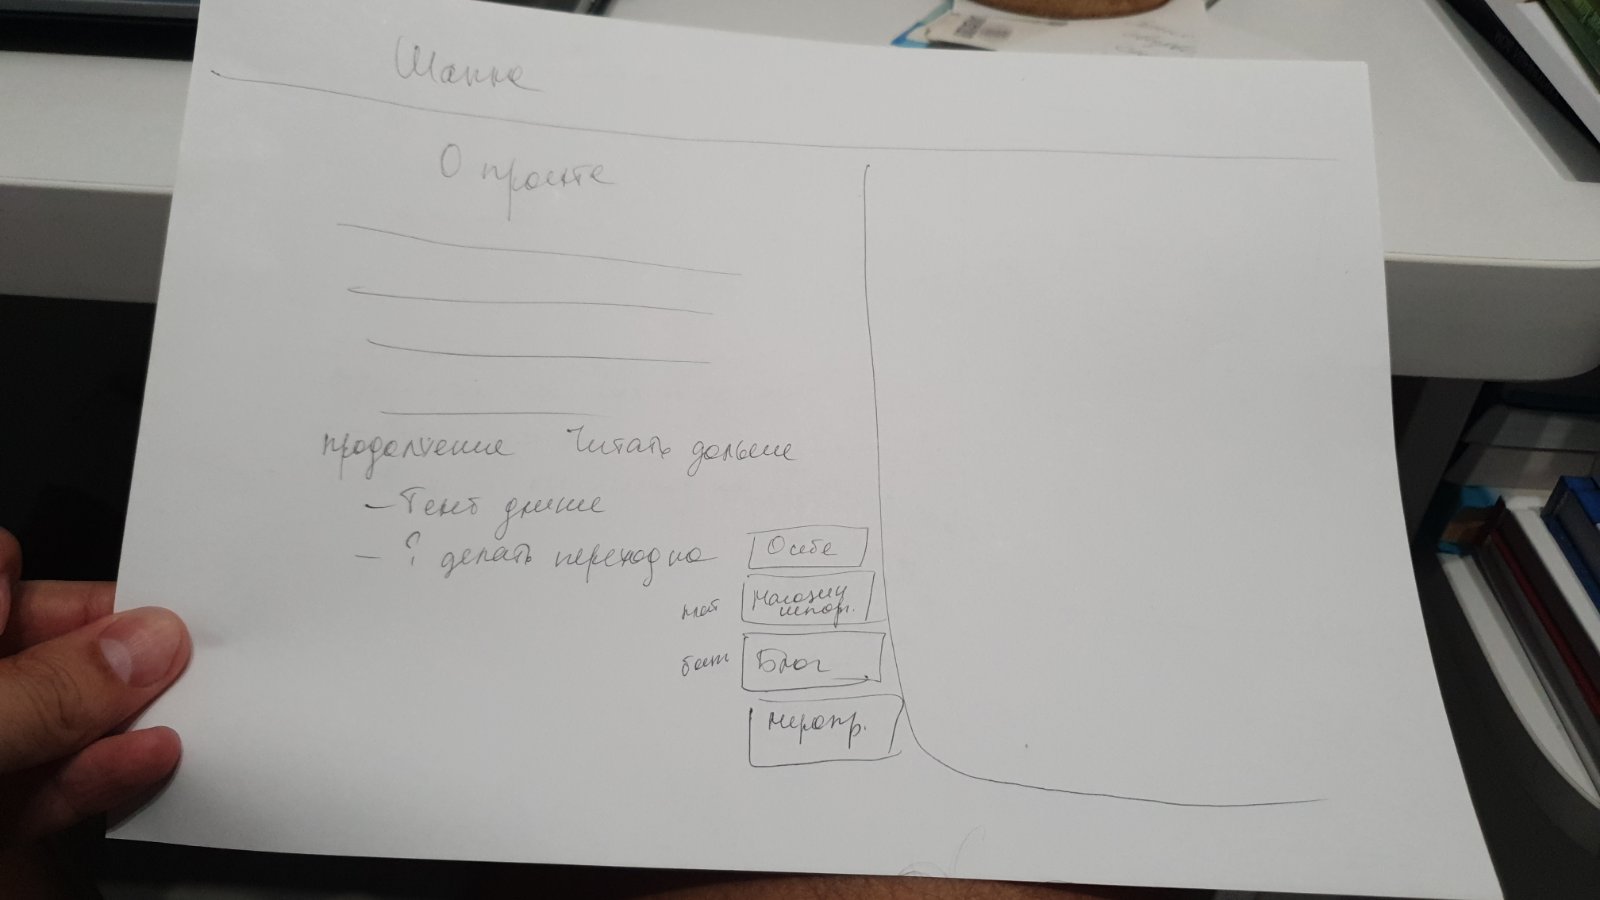 Шапка
О проекте
продолжение Читать дальше
– Текст длинне
– ? делать переход на
О себе
Магазин
импор.
Блог
меропр.